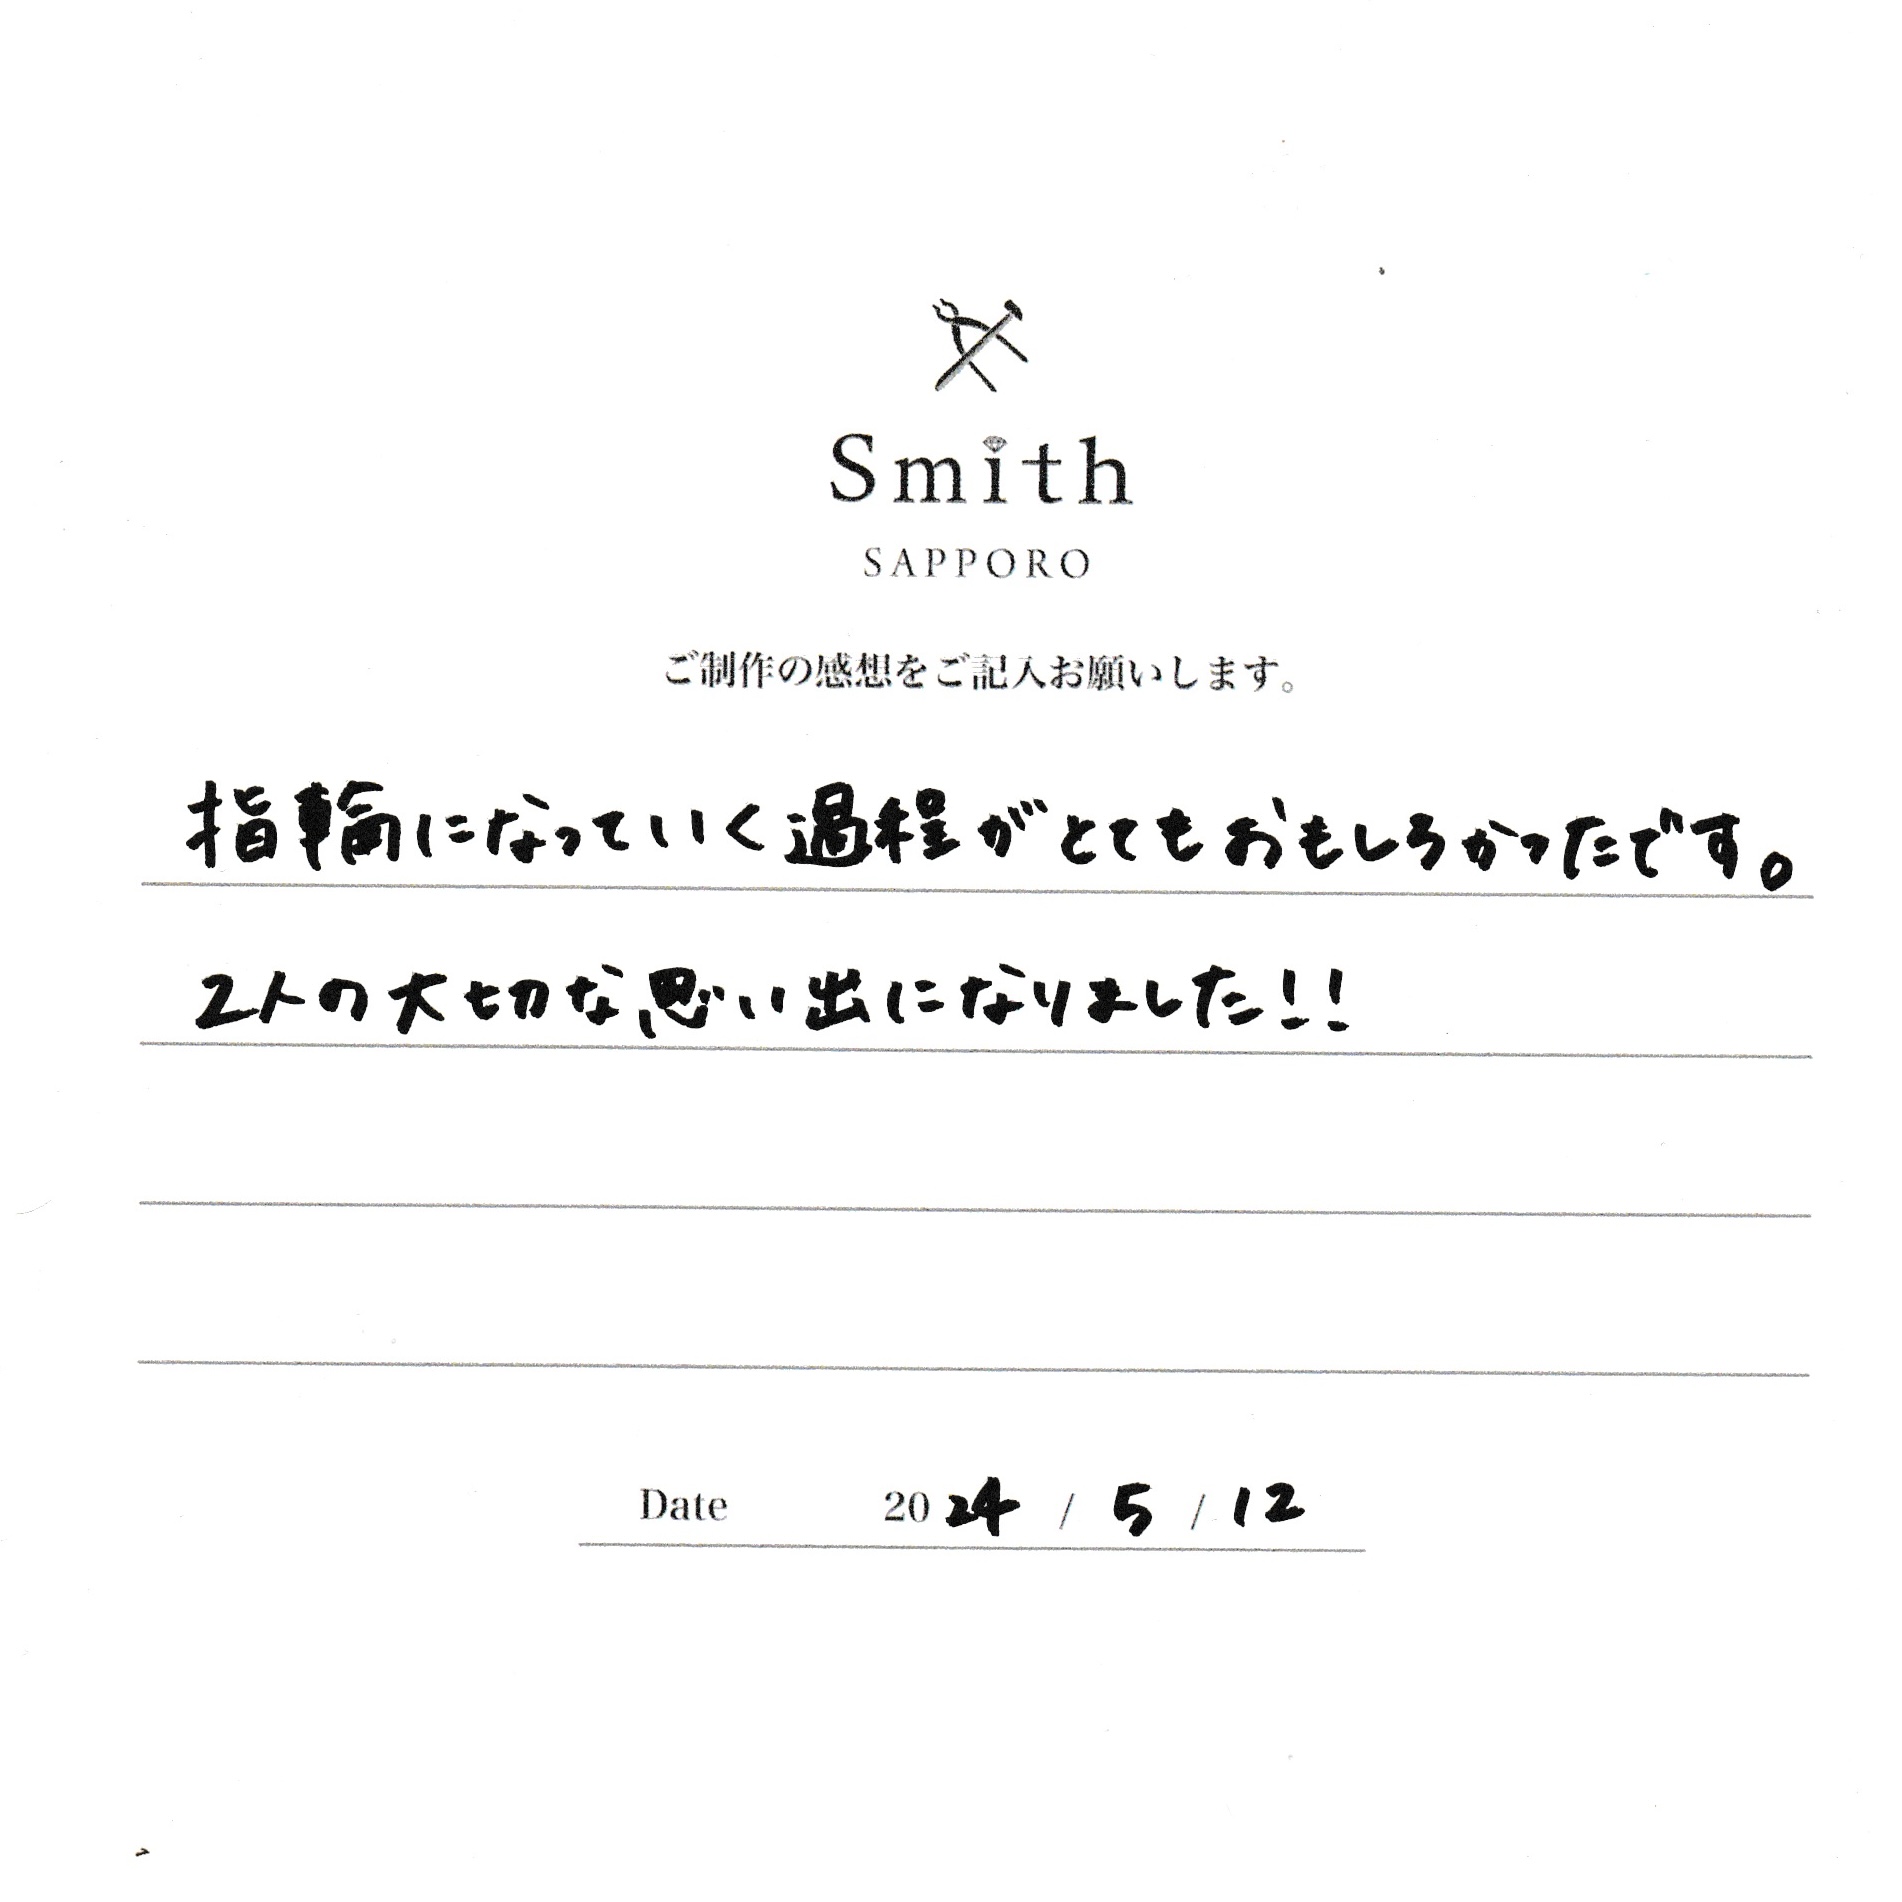 Smith
SAPPORO
ご制作の感想をご記入お願いします。
指輪になっていく過程がとてもおもしろかったです。
2人の大切な思い出になりました!!
Date 2024 / 5 / 12